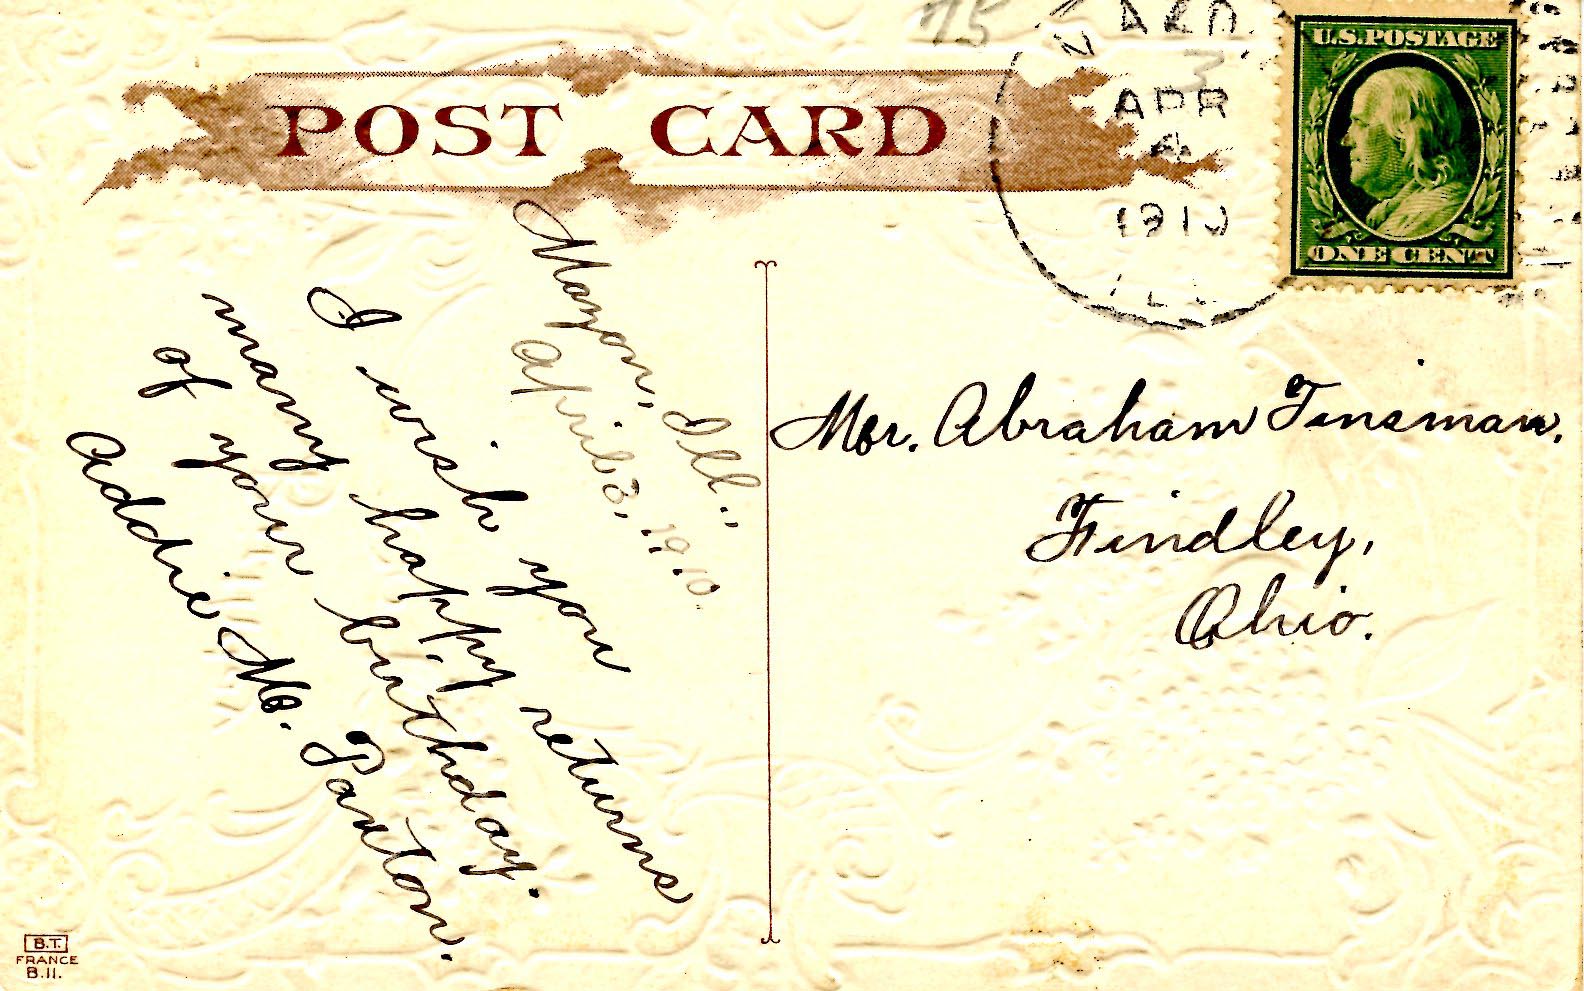 75
POST CARD
U.S. POSTAGE
ONE CENT
APR
1910
Mazon, Ill.,
April 3, 1910.
I wish you
many happy returns
of your birthday.
Addie M. Paxton.
Mr. Abraham Tinsman.
Findley,
Ohio.
B.T.
FRANCE
B.11.